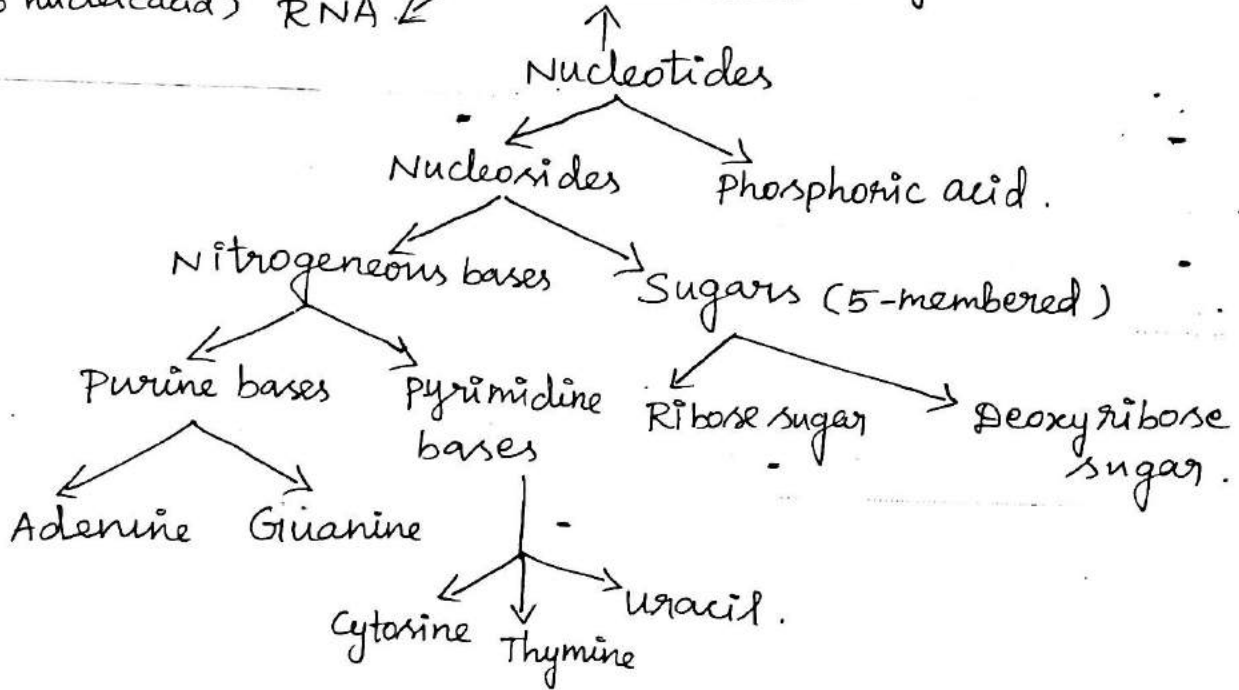 nucleic acid) RNA
Nucleotides
Nucleosides Phosphoric acid.
Nitrogeneous bases Sugars (5-membered)
Purine bases Pyrimidine Ribose sugar Deoxyribose
bases sugar.
Adenine Guanine
Cytosine Thymine Uracil.